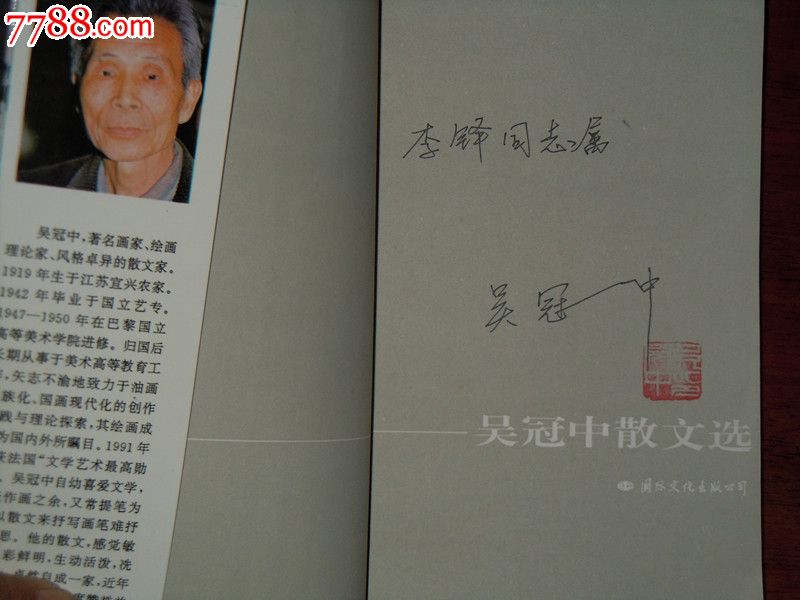 7788.com
吴冠中,著名画家、绘画
理论家、风格卓异的散文家。
1919年生于江苏宜兴农家。
1942年毕业于国立艺专。
1947—1950年在巴黎国立
高等美术学院进修。归国后
长期从事于美术高等教育工
,矢志不渝地致力于油画
族化、国画现代化的创作
践与理论探索,其绘画成
为国内外所瞩目。1991年
获法国“文学艺术最高勋
吴冠中自幼喜爱文学,
作画之余,又常提笔为
以散文来抒写画笔难抒
思。他的散文,感觉敏
彩鲜明,生动活泼,洗
自成一家,近年
李铎同志属
吴冠中
吴冠中散文选
国际文化出版公司